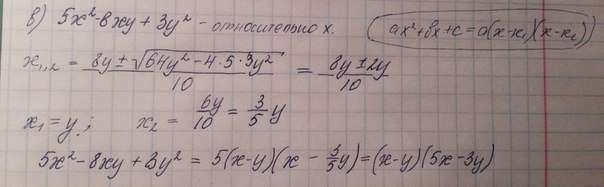 в) 5x² - 8xy + 3y² - относительно x. (ax² + bx + c = a(x-x₁)(x-x₂))
x₁,₂ = (8y ± √(64y² - 4·5·3y²))/10 = (8y ± 2y)/10
x₁ = y; x₂ = 6y/10 = 3/5 y
5x² - 8xy + 3y² = 5(x-y)(x - 3/5 y) = (x-y)(5x-3y)